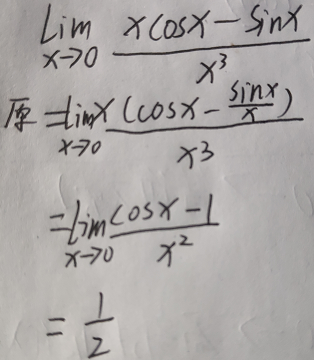 Lim x→0 (xcosx - sinx)/x³
原 = lim x→0 x(cosx - sinx/x)/x³
= lim x→0 (cosx - 1)/x²
= 1/2